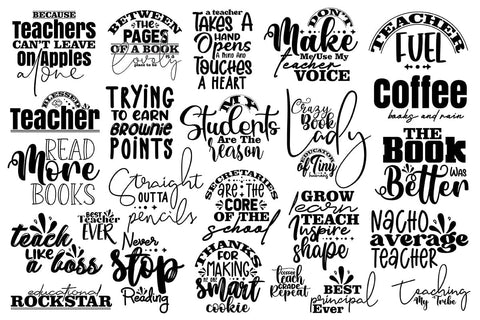 BECAUSE
Teachers
CAN'T LEAVE
ON Apples
alone
BETWEEN
THE
PAGES
OF A BOOK
is a
lovely
place to be
a teacher
TAKES A
HAND
OPENS
A MIND AND
TOUCHES
A HEART
DON'T
Make
Me/Use My
teacher
VOICE
TEACHER
FUEL
BLESSED
Teacher
TRYING
TO EARN
BROWNIE
POINTS
MY
Students
ARE THE
Reason
Crazy
Book
Lady
coffee
books and rain
READ
More
BOOKS
Straight
OUTTA
pencils
SECRETARIES
ARE THE
CORE
OF THE
school
EDUCATOR
of Tiny
THE
BOOK
WAS
Better
BEST
Teacher
EVER
teach
LIKE
A boss
Never
stop
Reading
THANKS
FOR
MAKING
ME ONE
smart
cookie
GROW
learn
TEACH
Inspire
shape
NACHO
average
TEACHER
educational
ROCKSTAR
Teach
GRADE
Repeat
BEST
principal
Ever
Teaching
My Tribe